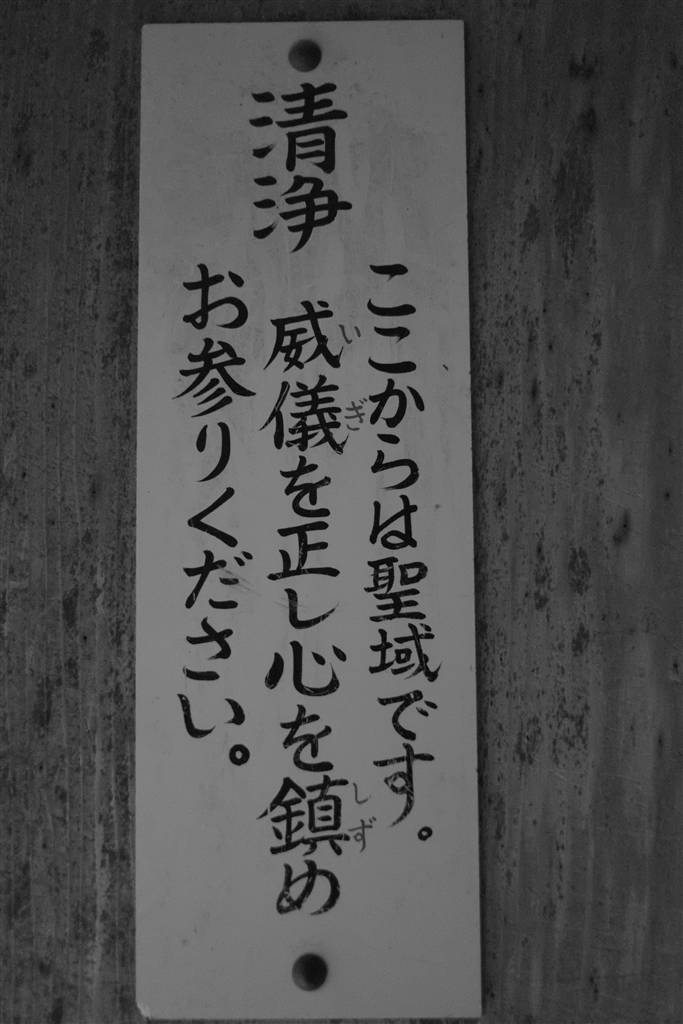 清浄
ここからは聖域です。
威儀を正し心を鎮め
いぎ
しず
お参りください。